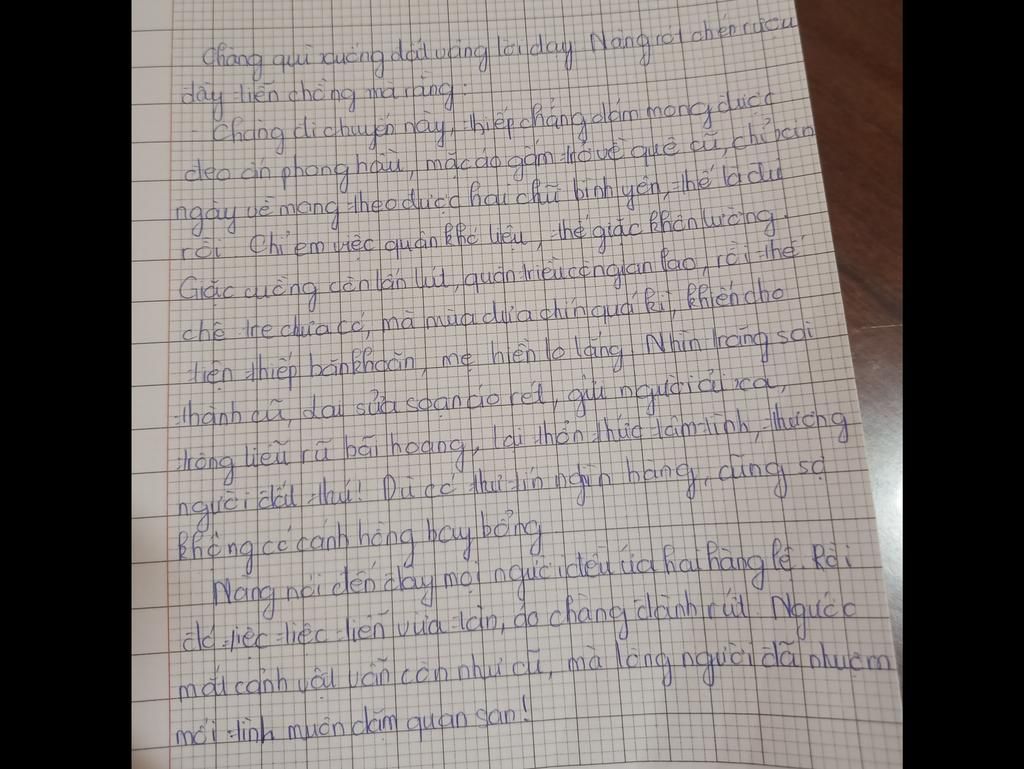 Chàng quì xuống đất vâng lời dạy. Nàng rót chén rượu
đầy tiễn chồng mà rằng:
- Chàng đi chuyến này, thiếp chẳng dám mong được
đeo ấn phong hầu, mặc áo gấm trở về quê cũ, chỉ xin
ngày về mang theo được hai chữ bình yên, thế là đủ
rồi. Chỉ em việc quân khó liệu, thế giặc khôn lường.
Giặc cuồng còn lẩn lút, quân triều còn gian lao, rồi thế
chẻ tre chưa có, mà mùa dưa chín quá kì, khiến cho
tiện thiếp băn khoăn, mẹ hiền lo lắng. Nhìn trăng soi
thành cũ, đại sửa soạn áo rét, gửi người ải xa,
trông liễu rủ bãi hoang, lại thổn thức tâm tình, thương
người đất thú! Dù có thư tín nghìn hàng, cũng sợ
không có cánh hồng bay bổng
Nàng nói đến đây mọi người đều ứa hai hàng lệ. Rồi
đó tiệc tiệc tiễn vừa tàn, áo chàng đành rứt. Ngước
mắt cảnh vật vẫn còn như cũ, mà lòng người đã nhuộm
mối tình muôn dặm quan san!